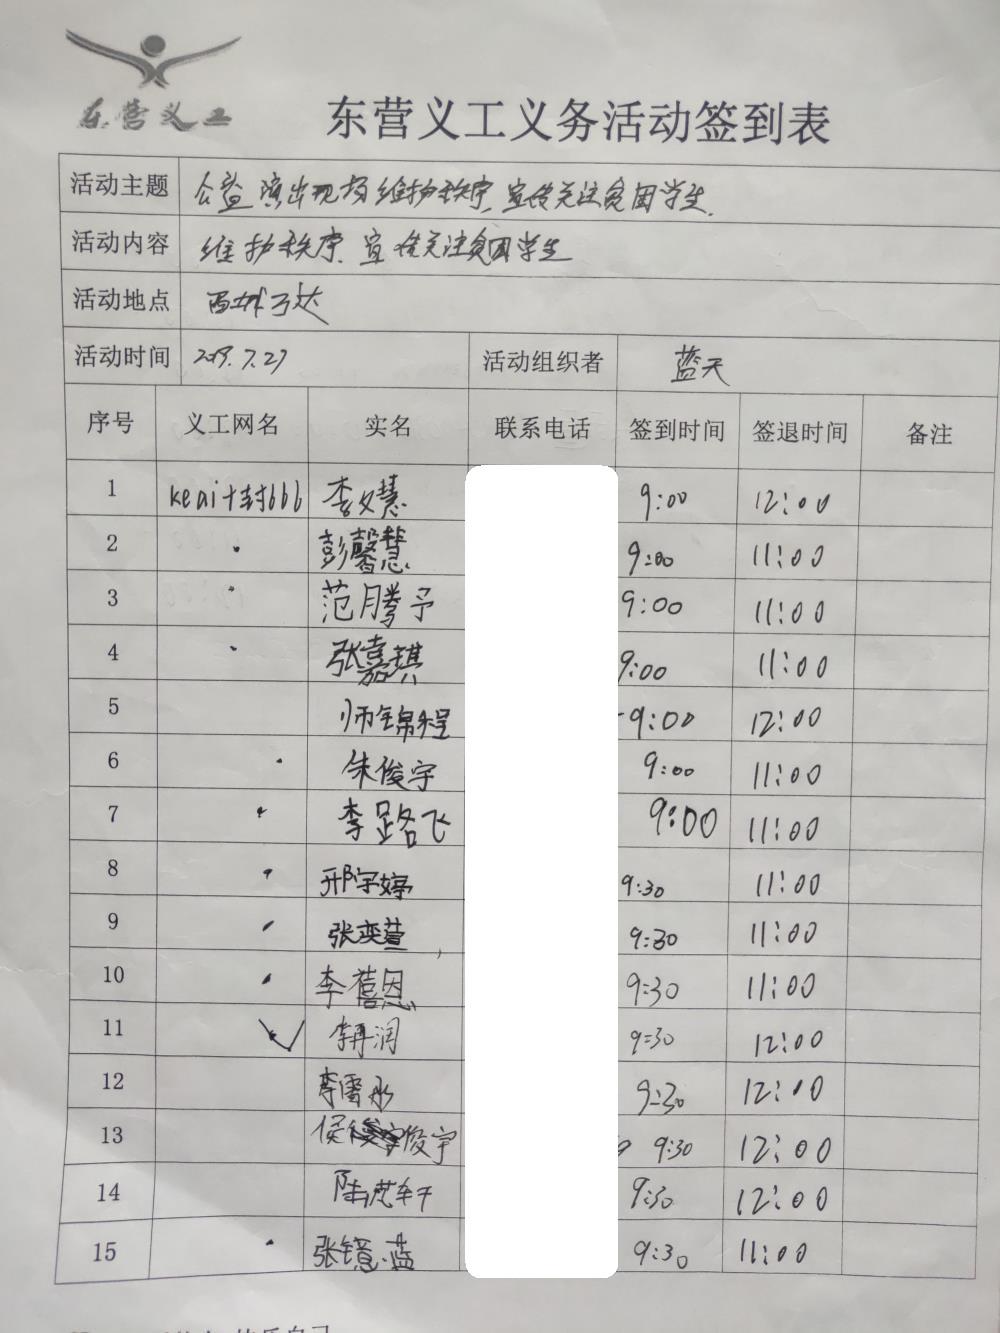 东营义工
东营义工义务活动签到表
活动主题 公益演出现场维护秩序,宣传关注贫困学生.
活动内容 维护秩序、宣传关注贫困学生
活动地点 西城万达
活动时间 2019.7.27 活动组织者 蓝天
序号 义工网名 实名 联系电话 签到时间 签退时间 备注
1 keai十封666 李文慧 9:00 12:00
2 彭馨慧 9:00 11:00
3 范腾予 9:00 11:00
4 张嘉琪 9:00 11:00
5 师锦程 9:00 12:00
6 朱俊宇 9:00 11:00
7 李路飞 9:00 11:00
8 邢宇婷 9:30 11:00
9 张奕萱 9:30 11:00
10 李蓓恩 9:30 11:00
11 李再润 9:30 12:00
12 李雷永 9:30 12:00
13 侯俊宇 9:30 12:00
14 陆虎轩 9:30 12:00
15 张镱蓝 9:30 11:00